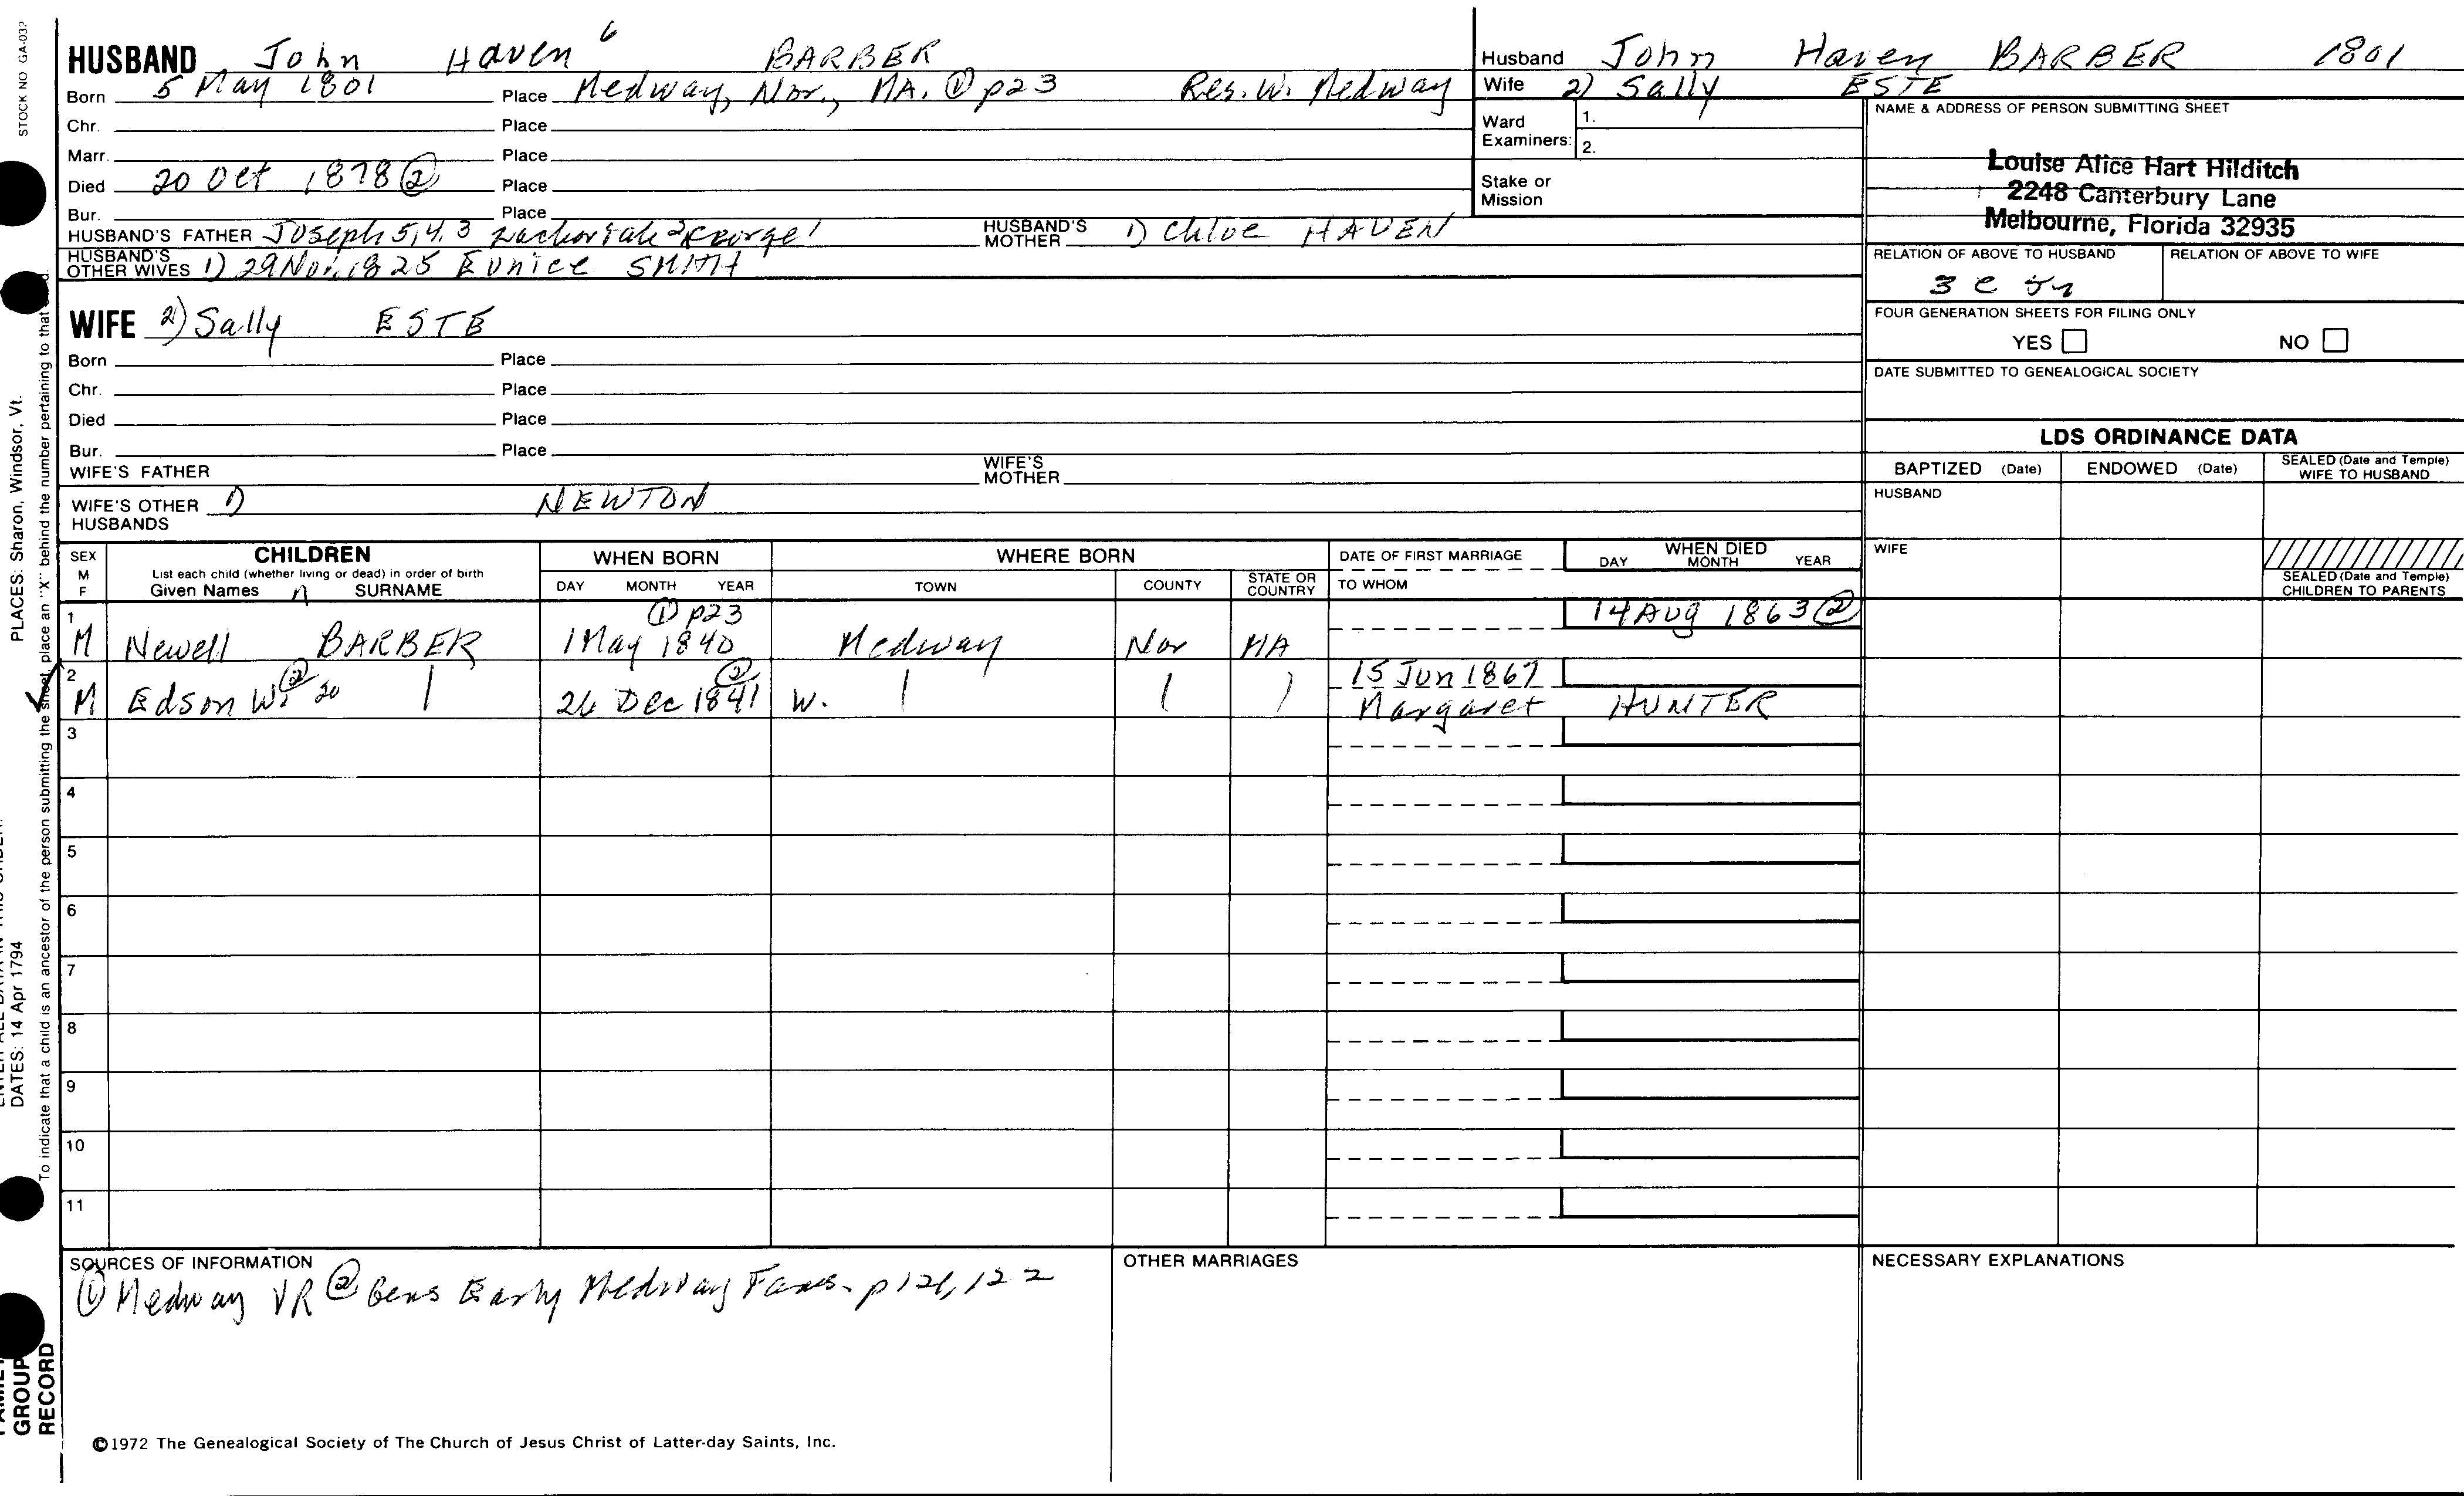 STOCK NO GA-03?
HUSBAND John Haven 6 BARBER
Born 5 May 1801 Place Medway, Nor., MA. ① p23 Res. W. Medway
Chr. Place
Marr. Place
Died 20 Oct 1878 ② Place
Bur. Place
HUSBAND'S FATHER Joseph 5,4,3 Zachariah 2 George 1 HUSBAND'S MOTHER 1) Chloe HAVEN
HUSBAND'S OTHER WIVES 1) 29 Nov 1825 Eunice SMITH
WIFE 2) Sally ESTE
Born Place
Chr. Place
Died Place
Bur. Place
WIFE'S FATHER WIFE'S MOTHER
WIFE'S OTHER HUSBANDS 1) NEWTON
Husband John Haven BARBER 1801
Wife 2) Sally ESTE
Ward Examiners: 1.
2.
Stake or Mission
NAME & ADDRESS OF PERSON SUBMITTING SHEET
Louise Alice Hart Hilditch
2248 Canterbury Lane
Melbourne, Florida 32935
RELATION OF ABOVE TO HUSBAND RELATION OF ABOVE TO WIFE
3 c
FOUR GENERATION SHEETS FOR FILING ONLY
YES NO
DATE SUBMITTED TO GENEALOGICAL SOCIETY
LDS ORDINANCE DATA
BAPTIZED (Date) ENDOWED (Date) SEALED (Date and Temple) WIFE TO HUSBAND
HUSBAND
WIFE
SEALED (Date and Temple) CHILDREN TO PARENTS
SEX M F CHILDREN WHEN BORN WHERE BORN DATE OF FIRST MARRIAGE WHEN DIED
List each child (whether living or dead) in order of birth
Given Names SURNAME DAY MONTH YEAR TOWN COUNTY STATE OR COUNTRY TO WHOM DAY MONTH YEAR
1 ① p23 14 Aug 1863 ②
M Newell BARBER 1 May 1840 Medway Nor MA
2 ② 20 ② 15 Jun 1867
M Edson W. 26 Dec 1841 W. Margaret HUNTER
3
4
5
6
7
8
9
10
11
SOURCES OF INFORMATION
① Medway VR ② Gens Early Medway Fams. p 121, 122
OTHER MARRIAGES
NECESSARY EXPLANATIONS
©1972 The Genealogical Society of The Church of Jesus Christ of Latter-day Saints, Inc.
PLACES: Sharon, Windsor, Vt.
DATES: 14 Apr 1794
To indicate that a child is an ancestor of the person submitting the sheet, place an "X" behind the number pertaining to that
GROUP
RECORD